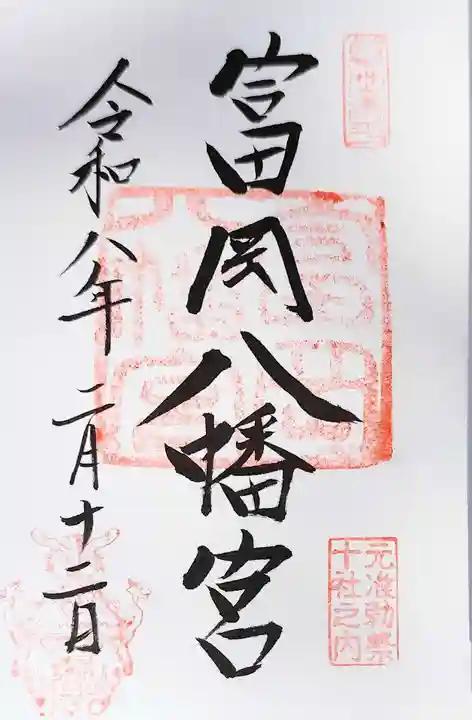 富岡八幡宮
元准勅祭
十社之内
令和八年二月十二日